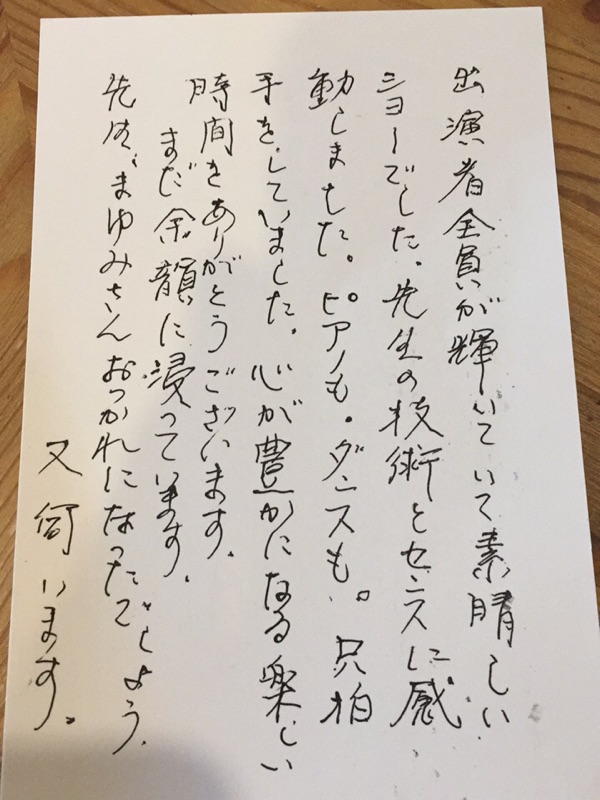 出演者全員が輝いていて素晴しい
ショーでした。先生の技術とセンスに感
動しました。ピアノも。ダンスも。只拍
手をしていました。心が豊かになる楽しい
時間をありがとうございます。
まだ余韻に浸っています。
先生、まゆみさんおつかれになったでしょう。
又伺います。